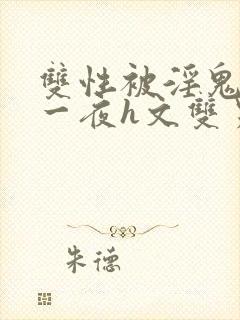 雙性被淫鬼
一夜h文雙
朱德